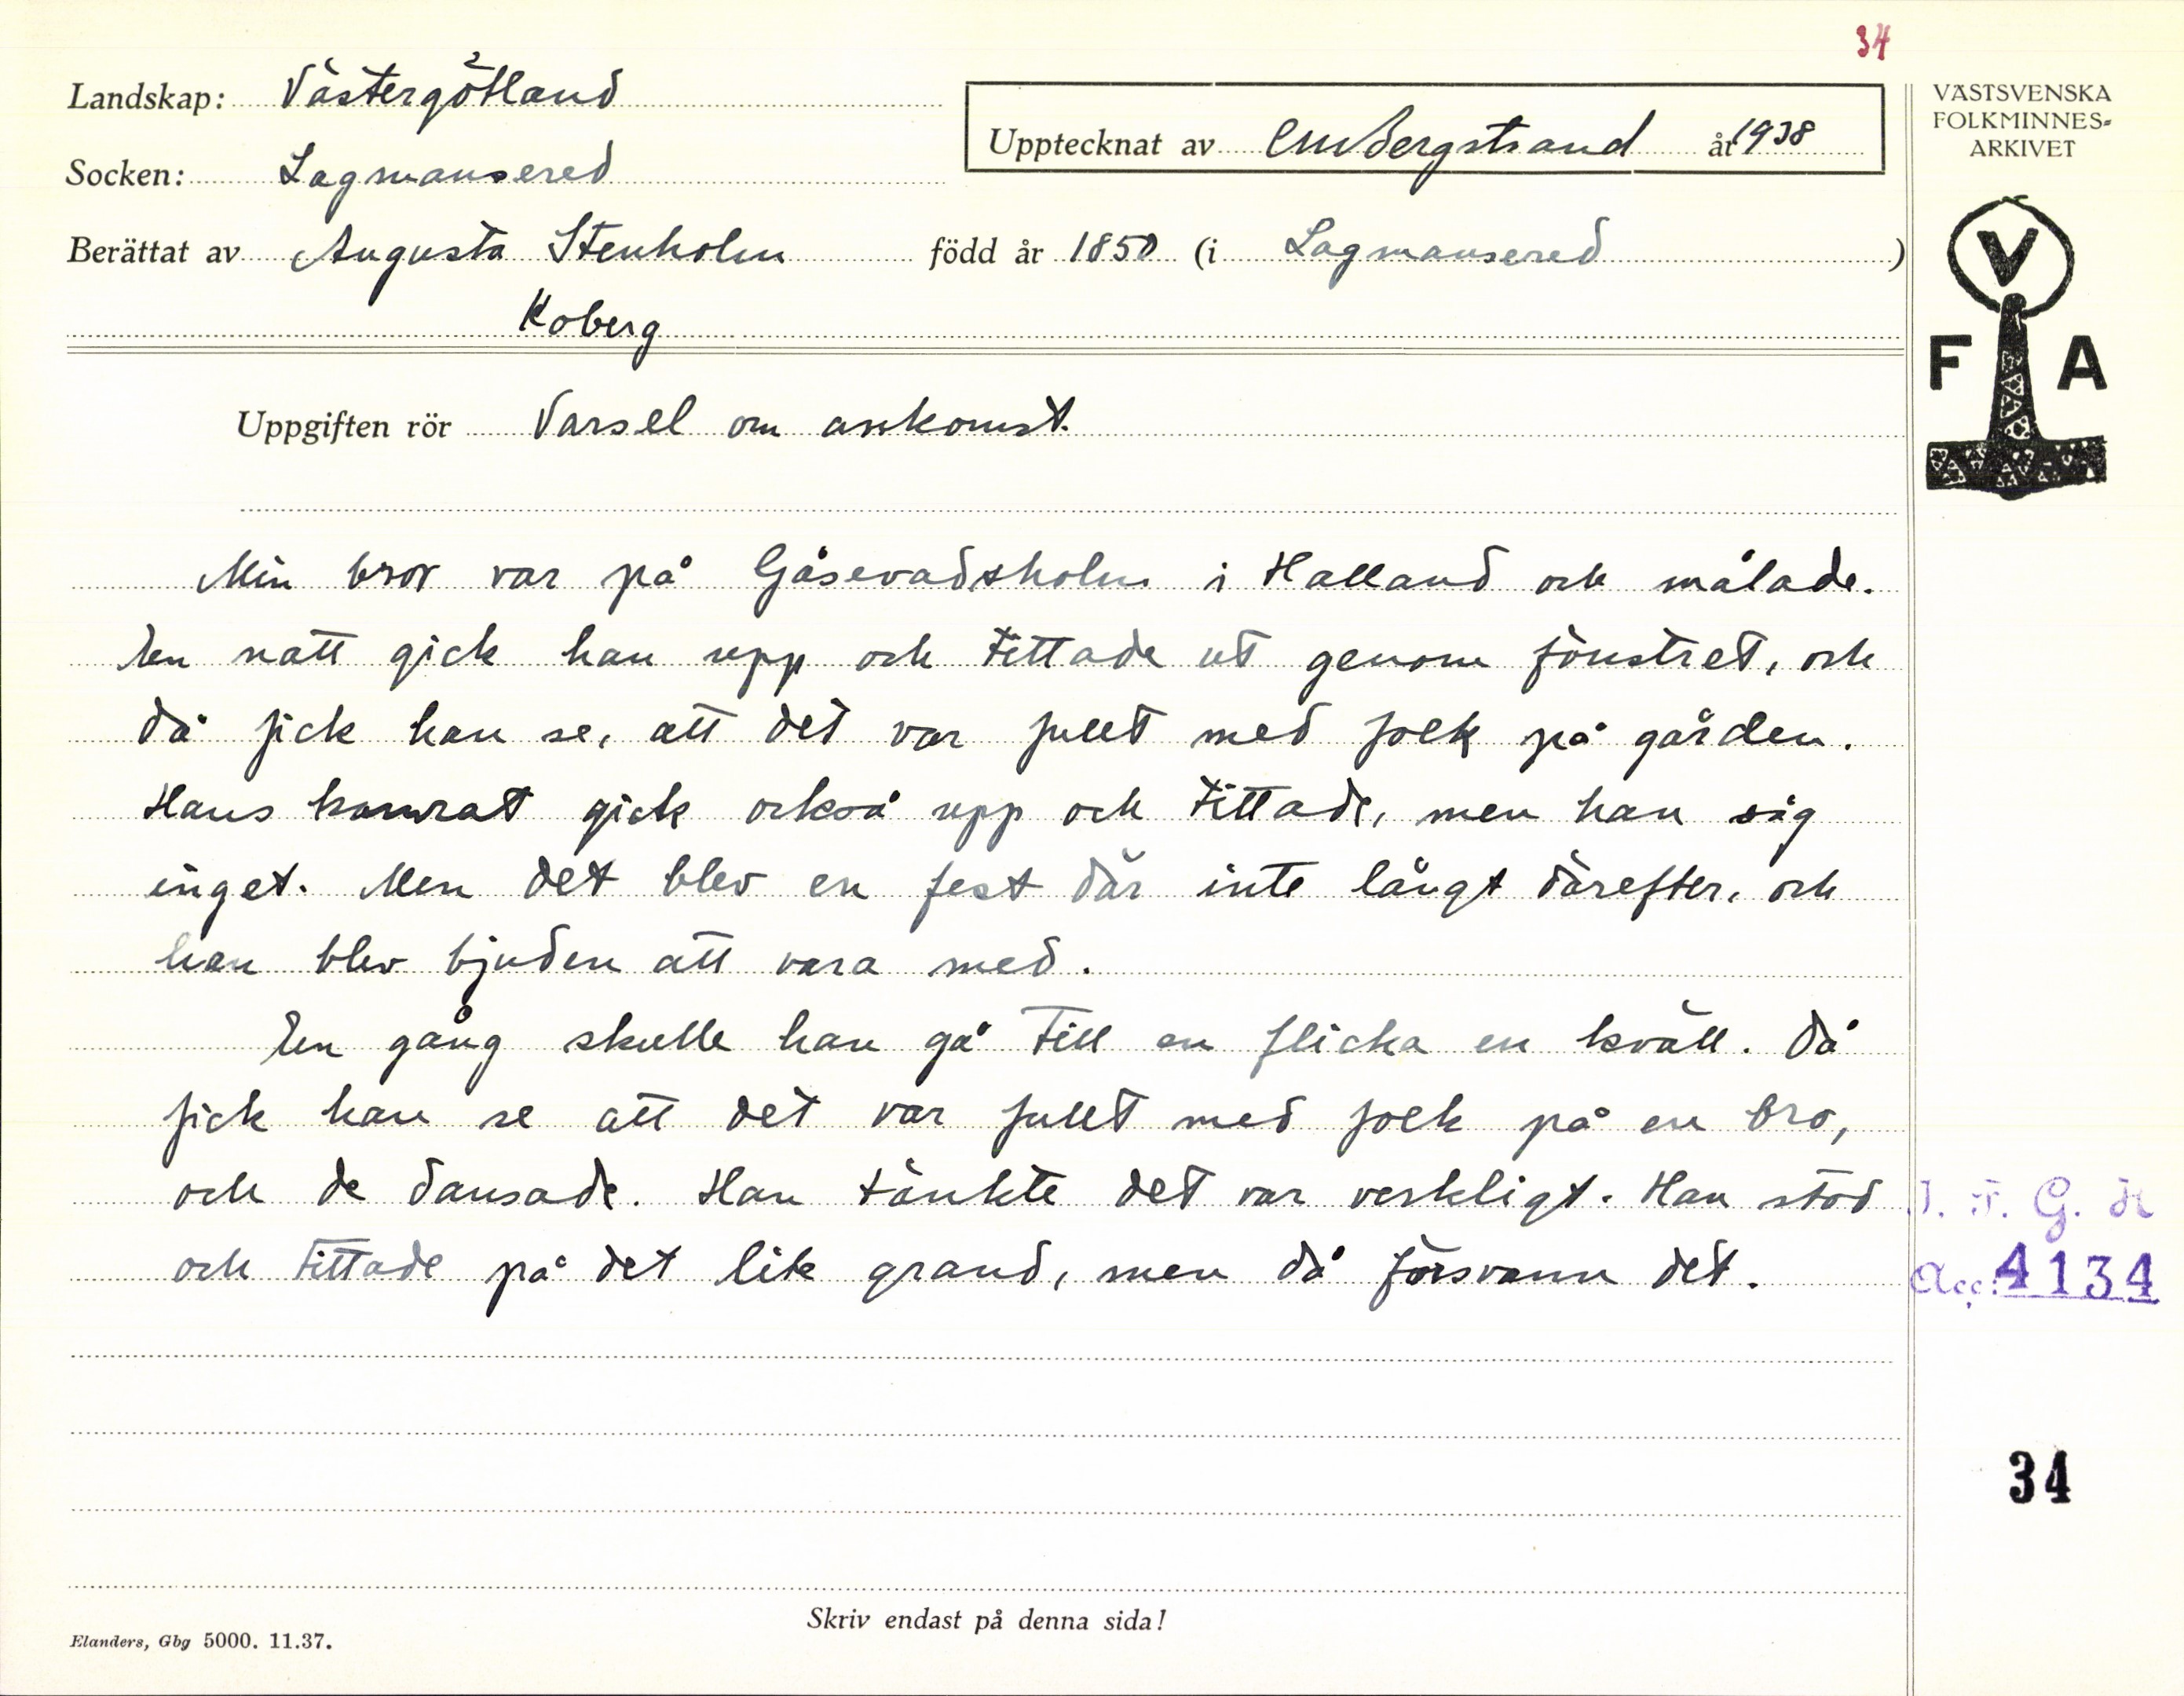 34
Landskap: Västergötland
Upptecknat av CMBergstrand år 1938
Socken: Lagmansered
Berättat av Augusta Stenholm född år 1850 (i Lagmansered)
Koberg
Uppgiften rör Varsel om ankomst.
Min bror var på Gåsevadsholm i Halland och målade.
En natt gick han upp och tittade ut genom fönstret, och
då fick han se, att det var fullt med folk på gården.
Hans kamrat gick också upp och tittade, men han såg
inget. Men det blev en fest där inte långt därefter, och
han blev bjuden att vara med.
En gång skulle han gå till en flicka en kväll. Då
fick han se att det var fullt med folk på en bro,
och de dansade. Han tänkte det var verkligt. Han stod
och tittade på det lite grand, men då försvann det.
Skriv endast på denna sida!
Elanders, Gbg 5000. 11.37.
VÄSTSVENSKA
FOLKMINNES-
ARKIVET
V
F A
I. F. G. H
Acc: 4134
34